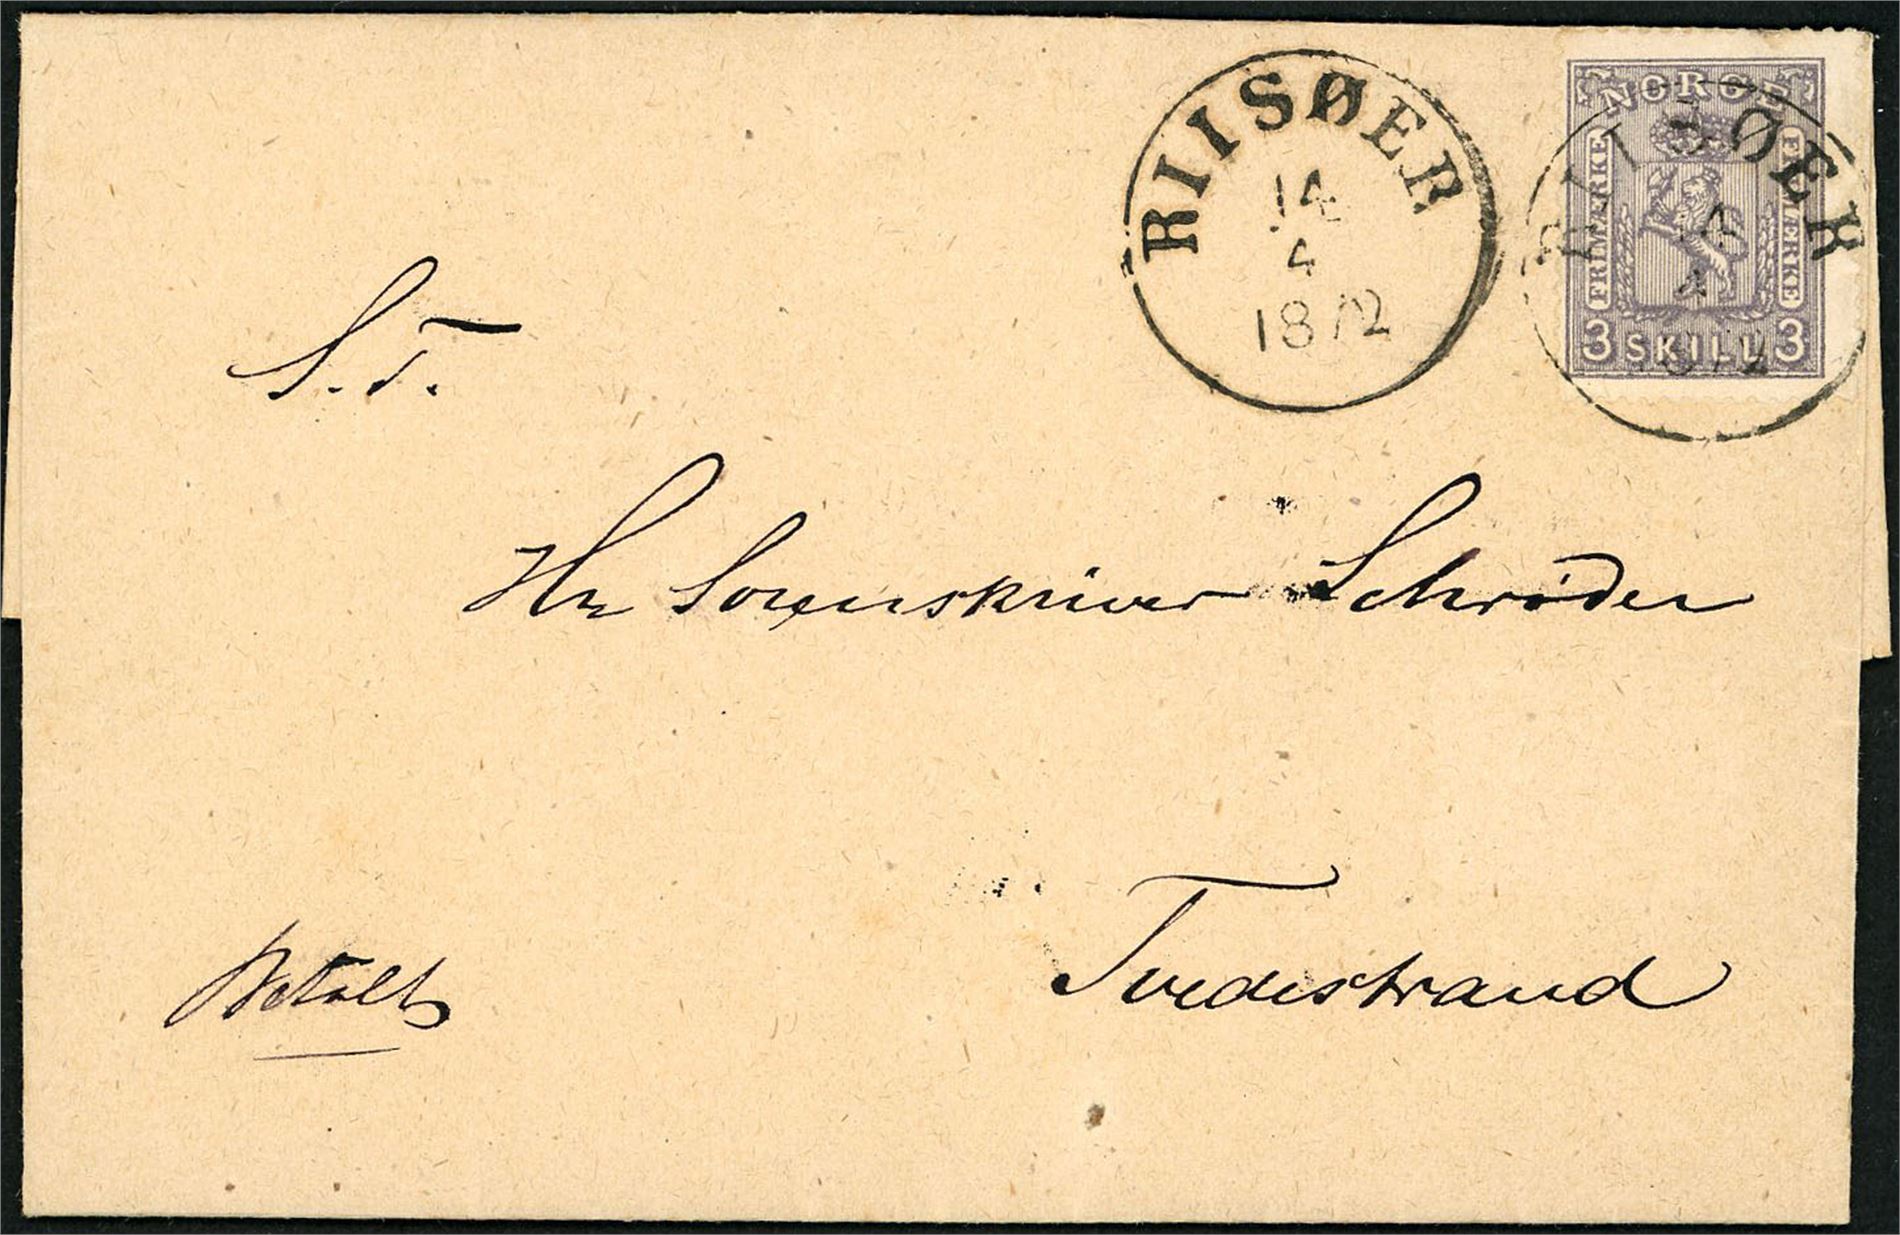 RIISØER
14
4
1872
NORGE
FRIMÆRKE
FRIMÆRKE
3 SKILL 3
RIISØER
14
4
1872
S. T.
Hr Sorenskriver Schrøder
Tvedestrand
Betalt